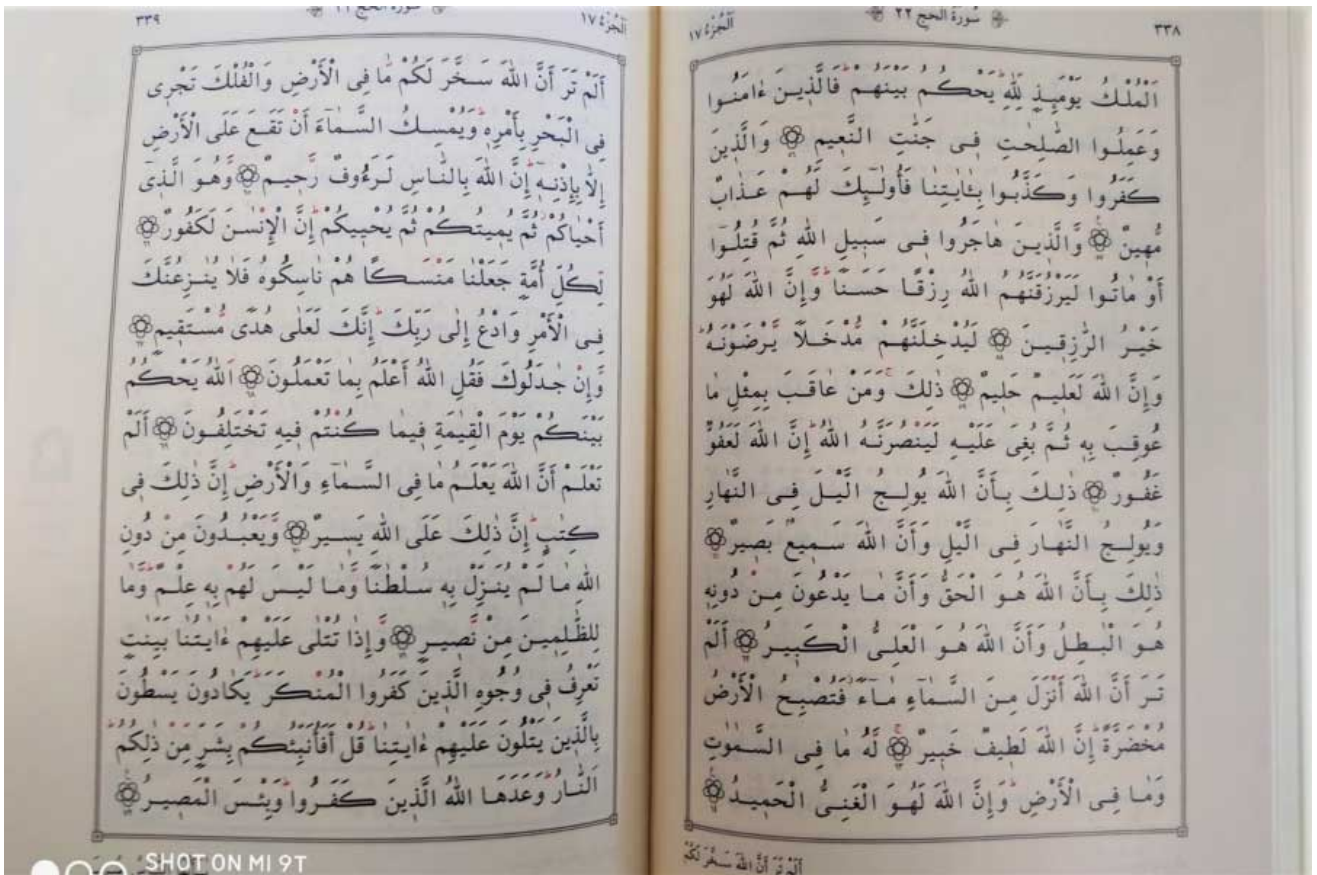 ٣٣٨
سُورَةُ الحج ٢٢
اَلْجُزْءُ ١٧
اَلْمُلْكُ يَوْمَئِذٍ لِلّٰهِ يَحْكُمُ بَيْنَهُمْ فَالَّذِينَ ءَامَنُوا
وَعَمِلُوا الصّٰلِحٰتِ فِى جَنّٰتِ النَّعِيمِ وَالَّذِينَ
كَفَرُوا وَكَذَّبُوا بِـَٔايٰتِنٰا فَأُولٰٓئِكَ لَهُمْ عَذٰابٌ
مُهِينٌ وَالَّذِينَ هٰاجَرُوا فِى سَبِيلِ اللّٰهِ ثُمَّ قُتِلُوٓا
أَوْ مٰاتُوا لَيَرْزُقَنَّهُمُ اللّٰهُ رِزْقًا حَسَنًا وَإِنَّ اللّٰهَ لَهُوَ
خَيْرُ الرّٰزِقِينَ لَيُدْخِلَنَّهُمْ مُدْخَلًا يَرْضَوْنَهُ
وَإِنَّ اللّٰهَ لَعَلِيمٌ حَلِيمٌ ذٰلِكَ وَمَنْ عٰاقَبَ بِمِثْلِ مٰا
عُوقِبَ بِهِ ثُمَّ بُغِىَ عَلَيْهِ لَيَنْصُرَنَّهُ اللّٰهُ إِنَّ اللّٰهَ لَعَفُوٌّ
غَفُورٌ ذٰلِكَ بِأَنَّ اللّٰهَ يُولِجُ الَّيْلَ فِى النَّهٰارِ
وَيُولِجُ النَّهٰارَ فِى الَّيْلِ وَأَنَّ اللّٰهَ سَمِيعٌ بَصِيرٌ
ذٰلِكَ بِأَنَّ اللّٰهَ هُوَ الْحَقُّ وَأَنَّ مٰا يَدْعُونَ مِنْ دُونِهِ
هُوَ الْبٰطِلُ وَأَنَّ اللّٰهَ هُوَ الْعَلِىُّ الْكَبِيرُ أَلَمْ
تَرَ أَنَّ اللّٰهَ أَنْزَلَ مِنَ السَّمٰٓاءِ مٰٓاءً فَتُصْبِحُ الْأَرْضُ
مُخْضَرَّةً إِنَّ اللّٰهَ لَطِيفٌ خَبِيرٌ لَهُ مٰا فِى السَّمٰوٰتِ
وَمٰا فِى الْأَرْضِ وَإِنَّ اللّٰهَ لَهُوَ الْغَنِىُّ الْحَمِيدُ
أَلَمْ تَرَ أَنَّ اللّٰهَ سَخَّرَ لَكُمْ
اَلْجُزْءُ ١٧
سُورَةُ الحج ٢٢
٣٣٩
أَلَمْ تَرَ أَنَّ اللّٰهَ سَخَّرَ لَكُمْ مٰا فِى الْأَرْضِ وَالْفُلْكَ تَجْرِى
فِى الْبَحْرِ بِأَمْرِهِ وَيُمْسِكُ السَّمٰٓاءَ أَنْ تَقَعَ عَلَى الْأَرْضِ
إِلّٰا بِإِذْنِهِ إِنَّ اللّٰهَ بِالنّٰاسِ لَرَءُوفٌ رَحِيمٌ وَهُوَ الَّذِىٓ
أَحْيٰاكُمْ ثُمَّ يُمِيتُكُمْ ثُمَّ يُحْيِيكُمْ إِنَّ الْإِنْسٰنَ لَكَفُورٌ
لِكُلِّ أُمَّةٍ جَعَلْنٰا مَنْسَكًا هُمْ نٰاسِكُوهُ فَلٰا يُنٰزِعُنَّكَ
فِى الْأَمْرِ وَادْعُ إِلٰى رَبِّكَ إِنَّكَ لَعَلٰى هُدًى مُسْتَقِيمٍ
وَإِنْ جٰدَلُوكَ فَقُلِ اللّٰهُ أَعْلَمُ بِمٰا تَعْمَلُونَ اَللّٰهُ يَحْكُمُ
بَيْنَكُمْ يَوْمَ الْقِيٰمَةِ فِيمٰا كُنْتُمْ فِيهِ تَخْتَلِفُونَ أَلَمْ
تَعْلَمْ أَنَّ اللّٰهَ يَعْلَمُ مٰا فِى السَّمٰٓاءِ وَالْأَرْضِ إِنَّ ذٰلِكَ فِى
كِتٰبٍ إِنَّ ذٰلِكَ عَلَى اللّٰهِ يَسِيرٌ وَيَعْبُدُونَ مِنْ دُونِ
اللّٰهِ مٰا لَمْ يُنَزِّلْ بِهِ سُلْطٰنًا وَمٰا لَيْسَ لَهُمْ بِهِ عِلْمٌ وَمٰا
لِلظّٰلِمِينَ مِنْ نَصِيرٍ وَإِذٰا تُتْلٰى عَلَيْهِمْ ءَايٰتُنٰا بَيِّنٰتٍ
تَعْرِفُ فِى وُجُوهِ الَّذِينَ كَفَرُوا الْمُنْكَرَ يَكٰادُونَ يَسْطُونَ
بِالَّذِينَ يَتْلُونَ عَلَيْهِمْ ءَايٰتِنٰا قُلْ أَفَأُنَبِّئُكُمْ بِشَرٍّ مِنْ ذٰلِكُمُ
النّٰارُ وَعَدَهَا اللّٰهُ الَّذِينَ كَفَرُوا وَبِئْسَ الْمَصِيرُ
SHOT ON MI 9T